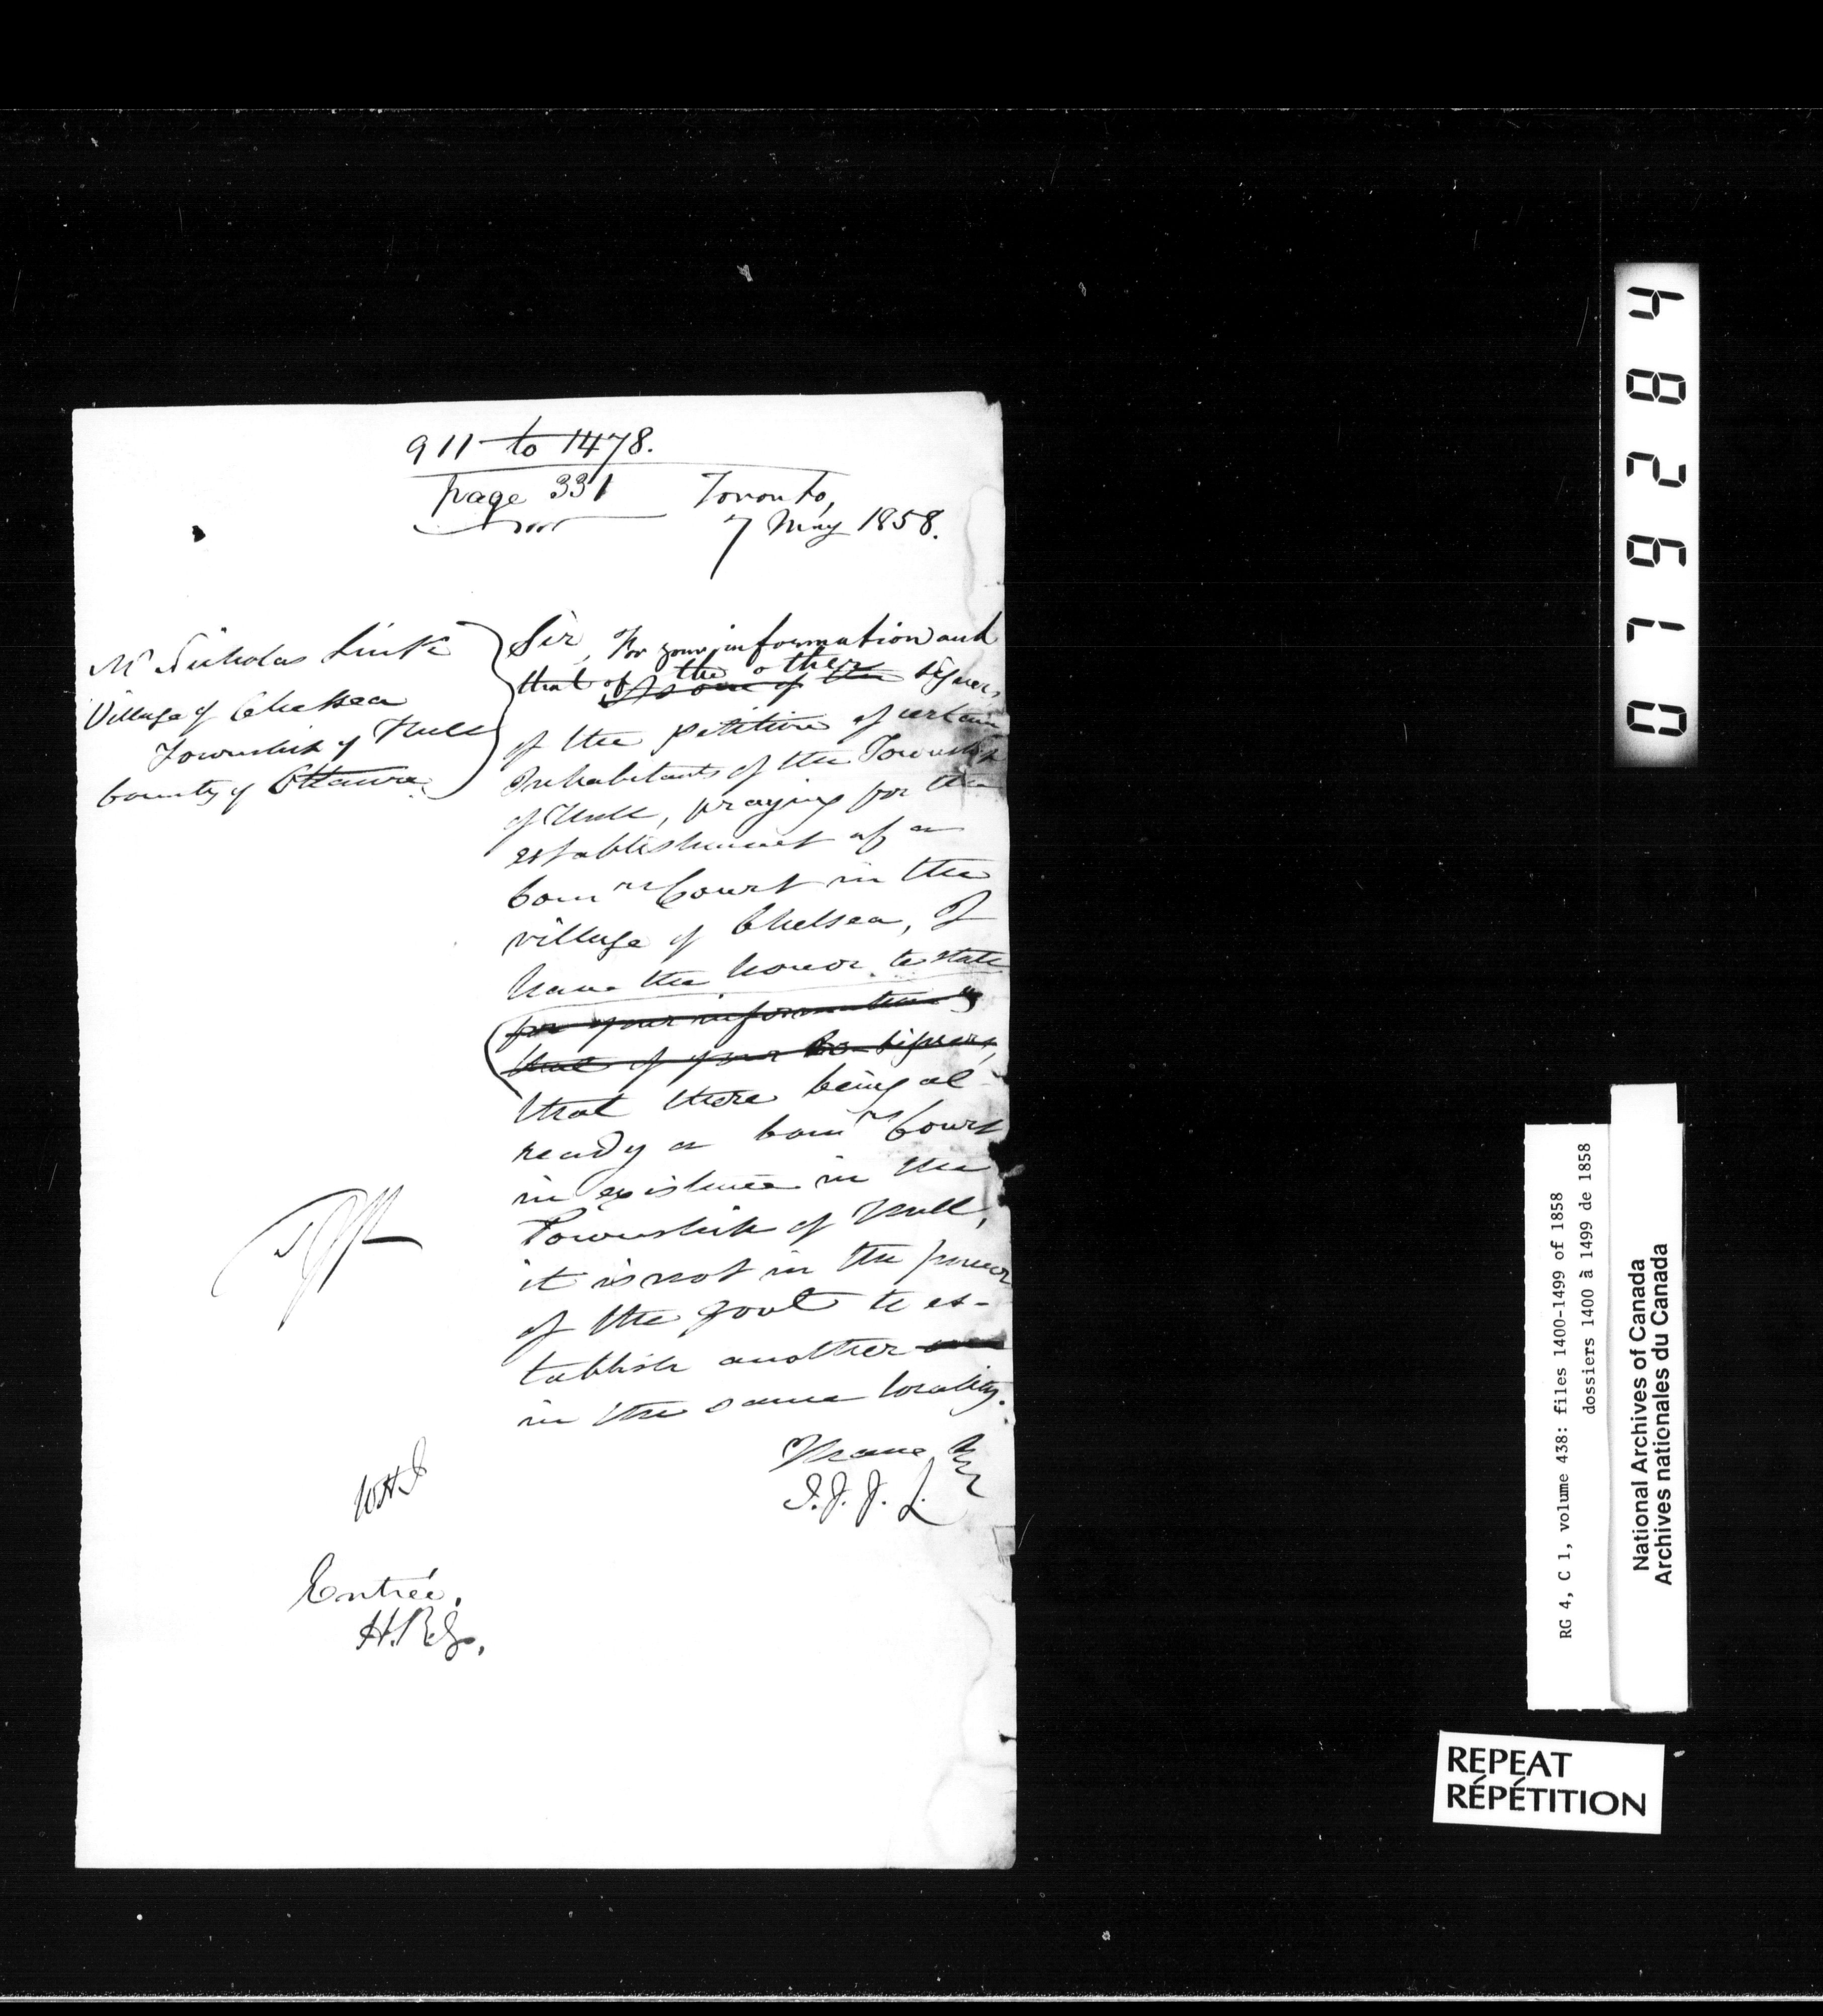 911 to 1478.
page 331
Toronto,
7 May 1858.
Mr Nicholas
Village of Chelsea
Township of Hull
County of Ottawa.
Sir, For your information and
that of the other
As one of the signers
of the petition of certain
Inhabitants of the Township
of Hull, praying for the
establishment of a
Comrs Court in the
village of Chelsea, I
have the honor to state
for your information &
that of your Co-signers,
that there being al-
ready a Comrs Court
in existence in the
Township of Hull,
it is not in the power
of the Govt to es-
tablish another one
in the same locality.
I have &c
T.J.J.L.
Entrée.
RG 4, C 1, volume 438: files 1400-1499 of 1858
dossiers 1400 à 1499 de 1858
National Archives of Canada
Archives nationales du Canada
REPEAT
RÉPÉTITION
079284